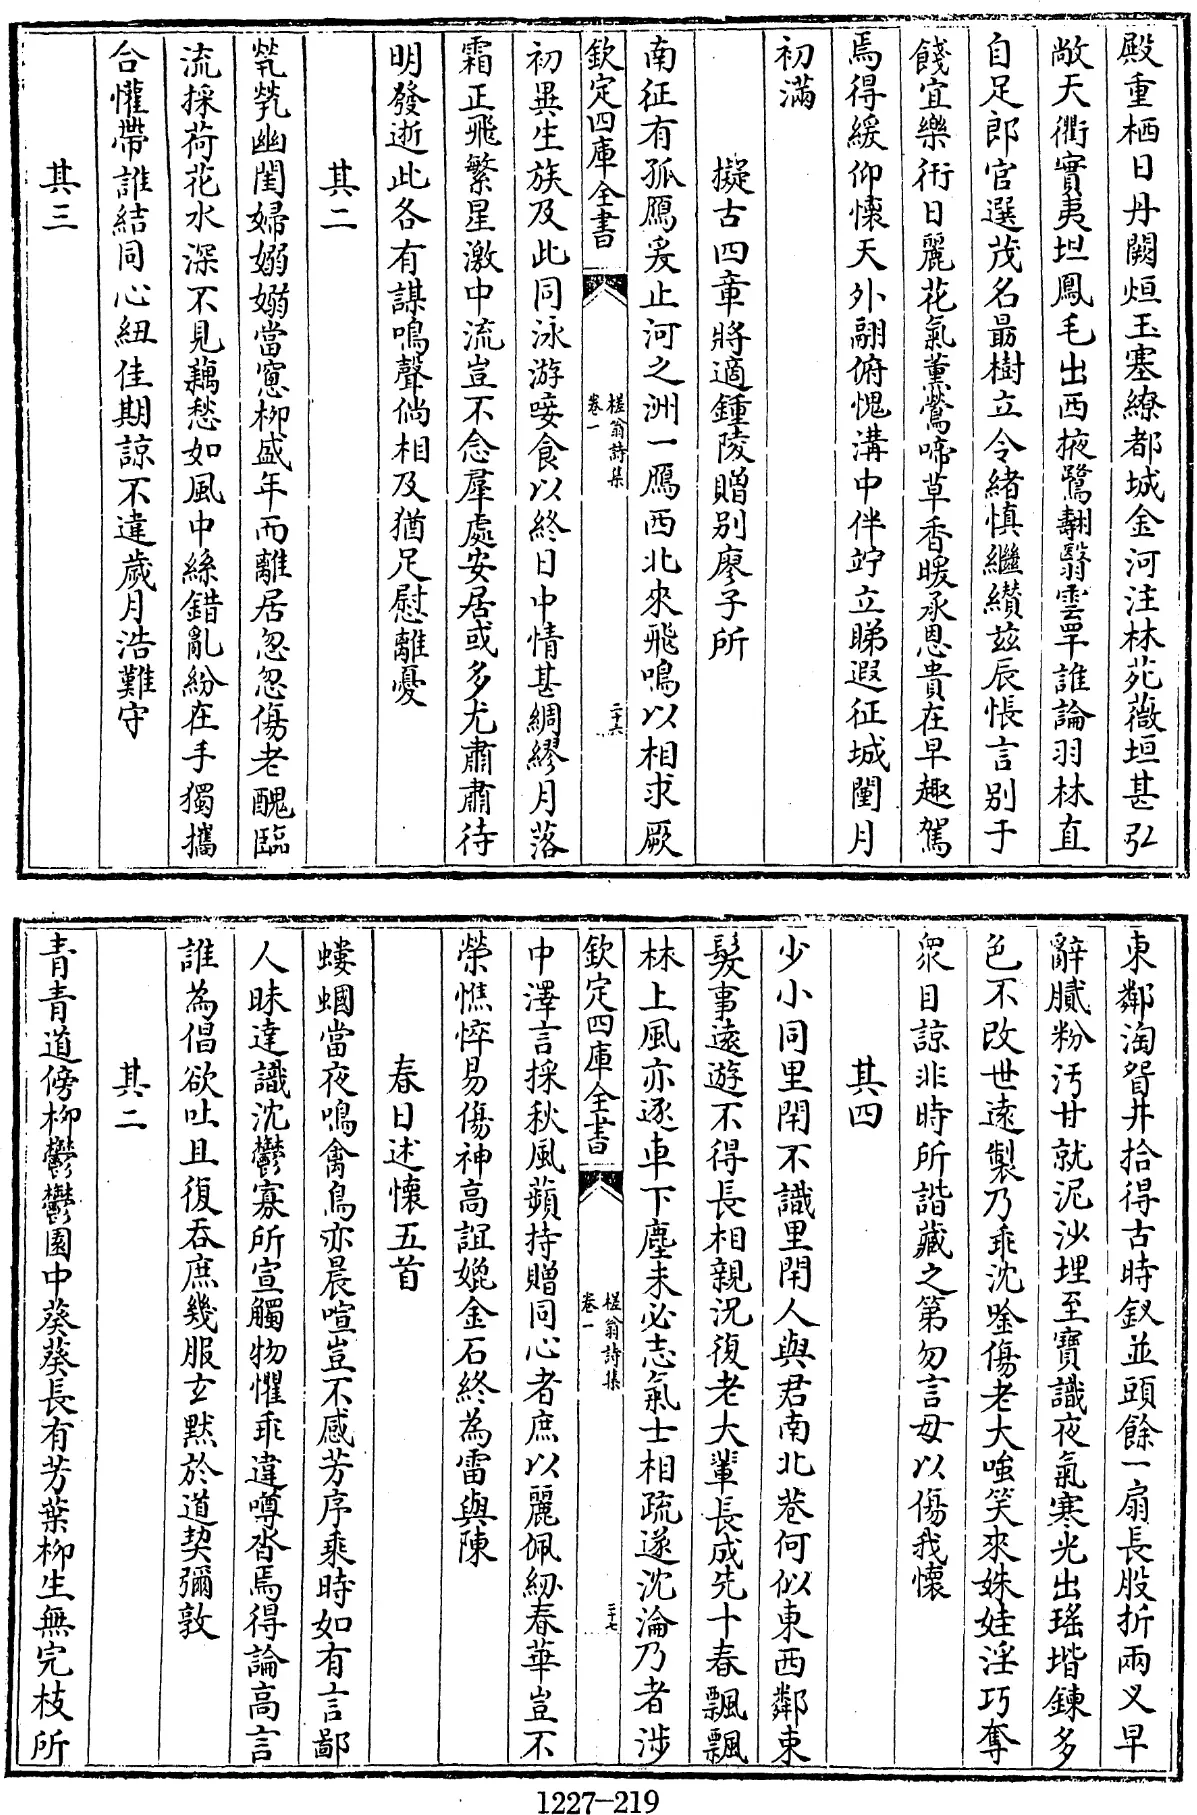 殿重栖日丹闕烜玉塞繚都城金河注林苑薇垣甚弘
敞天衢實夷坦鳳毛出西掖鷺翿翳雲罕誰論羽林直
自足郎官選茂名最樹立令緒慎繼纘兹辰悵言别于
餞宜樂衎日麗花氣薰鶯啼草香暖承恩貴在早趣駕
焉得緩仰懷天外翮俯愧溝中伴竚立睇遐征城闉月
初滿
擬古四章將適鍾陵贈别廖子所
南征有孤鴈爰止河之洲一鴈西北來飛鳴以相求厥
欽定四庫全書
槎翁詩集
卷一
二十六
初異生族及此同泳游唼食以終日中情甚綢繆月落
霜正飛繁星激中流豈不念羣處安居或多尤肅肅待
明發逝此各有謀鳴聲倘相及猶足慰離憂
其二
煢煢幽閨婦嫋嫋當窻柳盛年而離居忽忽傷老醜臨
流採荷花水深不見藕愁如風中絲錯亂紛在手獨攜
合懽帶誰結同心紐佳期諒不違歲月浩難守
其三
東鄰淘眢井拾得古時釵並頭餘一扇長股折兩叉早
辭膩粉汚甘就泥沙埋至寶識夜氣寒光出瑤堦鍊多
色不改世遠製乃乖沈唫傷老大嗤笑來姝娃淫巧奪
衆目諒非時所諧藏之第勿言毋以傷我懷
其四
少小同里閈不識里閈人與君南北巷何似東西鄰東
髮事遠遊不得長相親況復老大輩長成先十春飄飄
林上風亦逐車下塵未必志氣士相疏遂沈淪乃者涉
欽定四庫全書
槎翁詩集
卷一
二十七
中澤言採秋風蘋持贈同心者庶以麗佩紉春華豈不
榮憔悴易傷神高誼孋金石終為雷與陳
春日述懷五首
螻蟈當夜鳴禽鳥亦晨喧豈不感芳序乘時如有言鄙
人昧達識沈鬱寡所宣觸物懼乖違噂沓焉得論高言
誰為倡欲吐且復吞庶幾服玄黙於道契彌敦
其二
青青道傍柳鬱鬱園中葵葵長有芳葉柳生無完枝所
1227-219